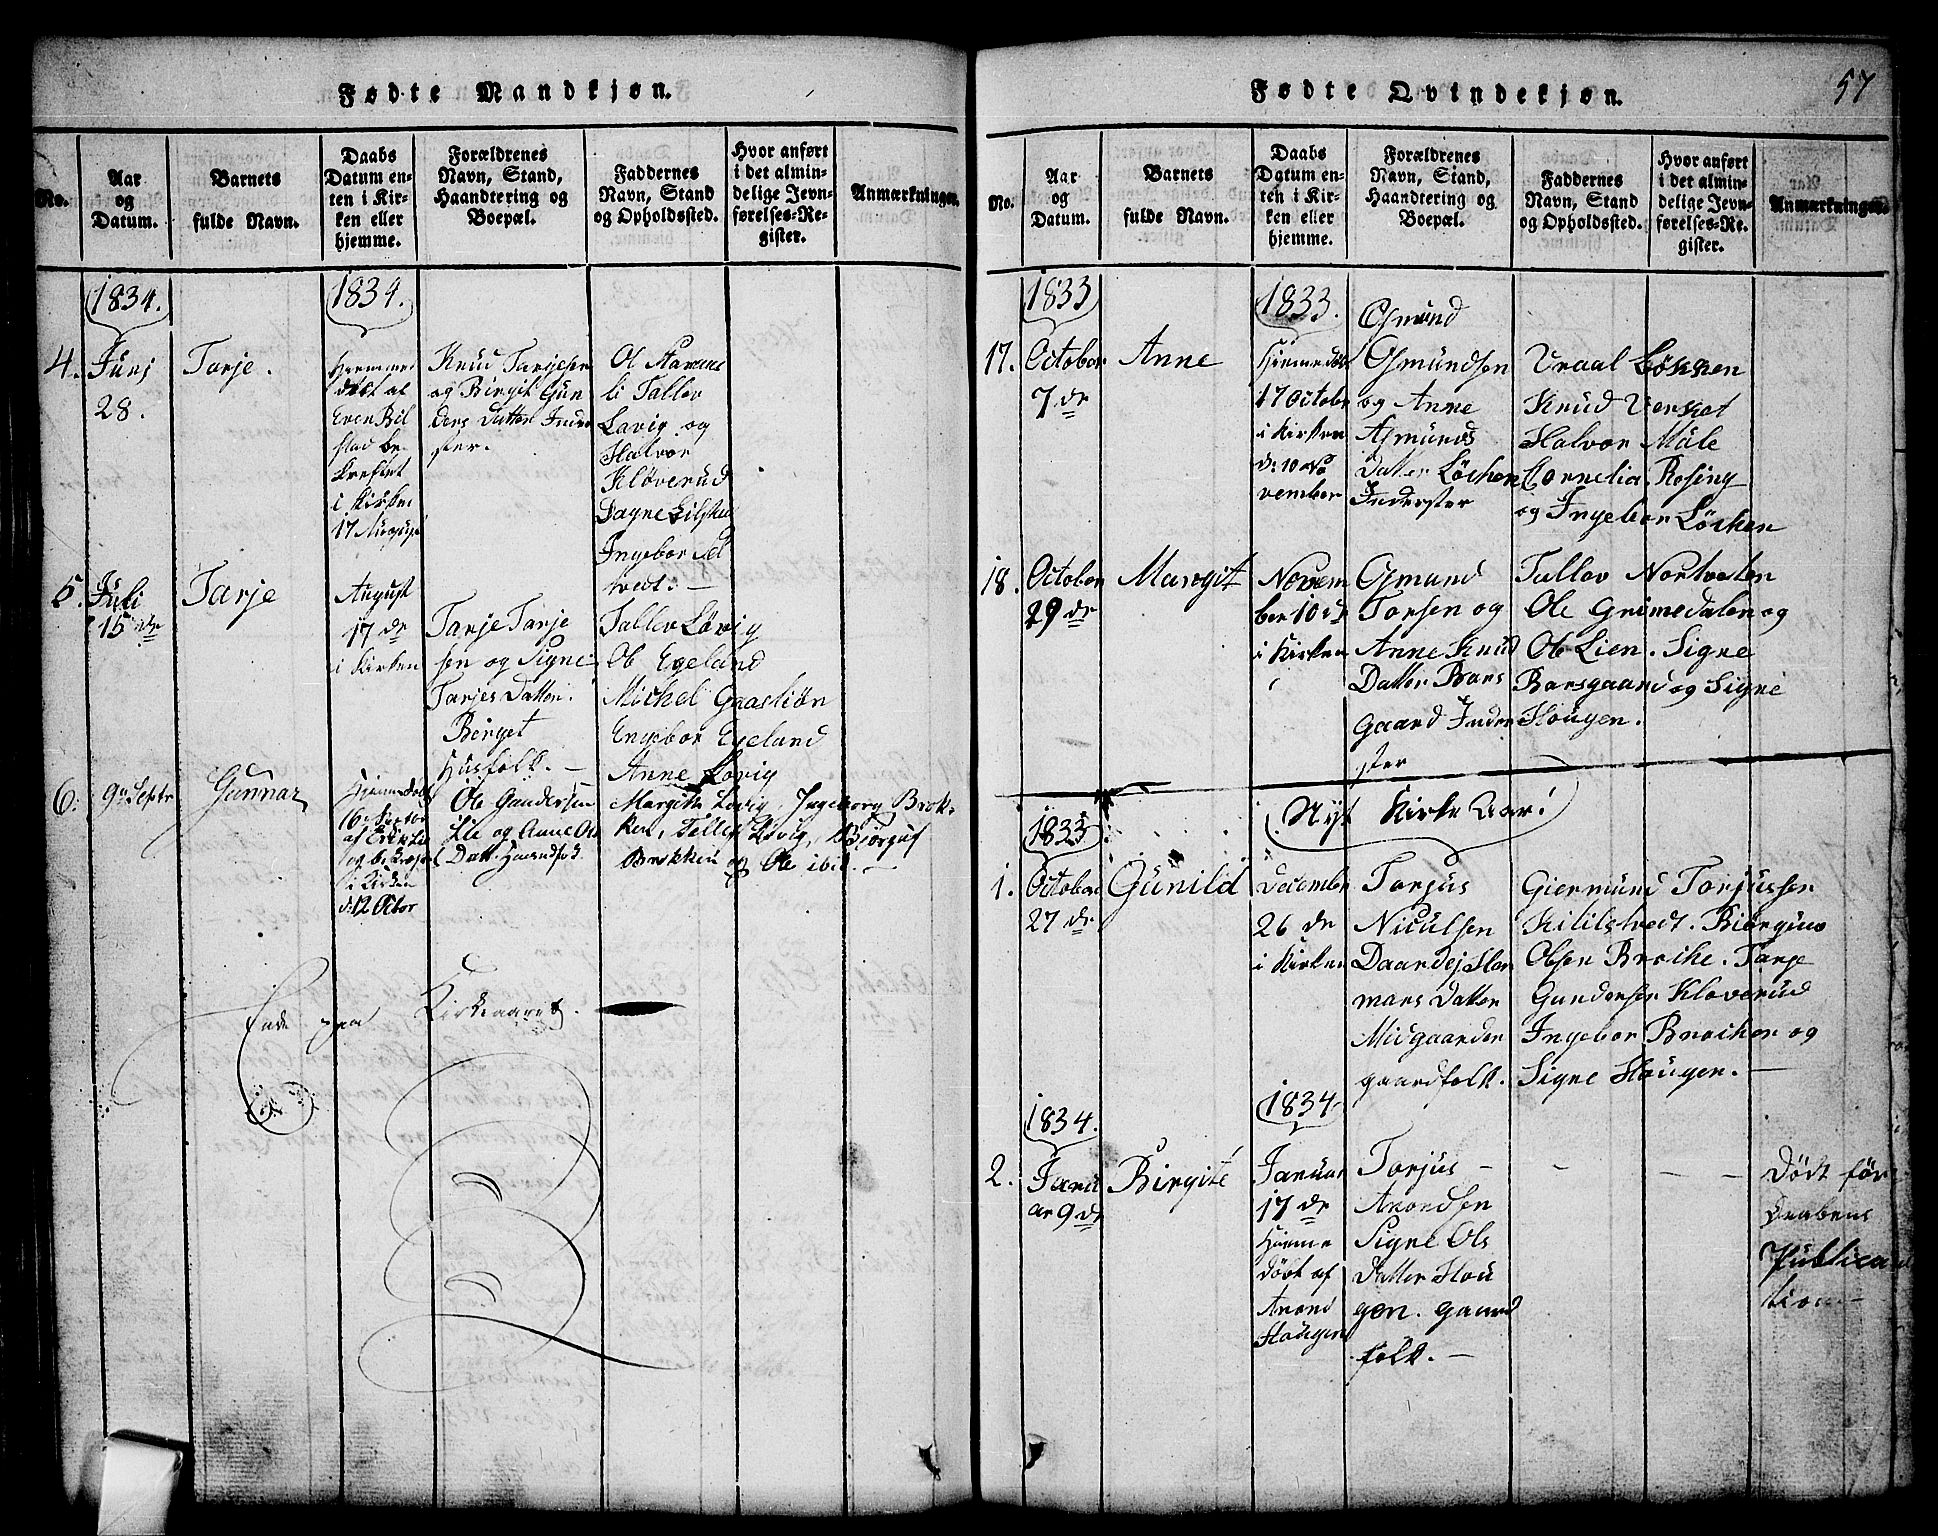 Fødte Mandkjøn.
No.
Aar
og
Datum.
Barnets
fulde Navn.
Daabs
Datum en-
ten i Kir-
ken eller
hjemme.
Forældrenes
Navn, Stand,
Haandtering og
Boepæl.
Faddernes
Navn, Stand
og Opholdssted.
Hvor anført
i det almin-
delige Jevn-
førelses-Re-
gister.
Anmærkninger.
1834.
1834.
4.
Junj
28.
Tarje.
døbt af
Even Bil
stad be
kreftet
i Kirken
17 August
Knud Tarjesen
og Birgit Gun
ders Datter Inder
ster.
Ol
li Tallev
Lavig og
Halvor
Kløverud
Dagne
Ingebor
tvedt. –
5.
Juli
15 de
Tarje
August
17 de
i Kirken
Tarje Tarje
sen og Signe
Tarjes Datter.
Berget
Husfolk. –
Tallev Løvig
Ole Egeland
Michel
Engebor Egeland
Anne Løvig
6.
9de Septr
Gunnar
Hjemmedøbt
16 Septbr
af Erik Lie
og bekræf
i Kirken
d. 12 Octor
Ole Gundersen
Lie og Anne Ols
Datt. Gaardfolk
Margithe Løvig, Ingeborg Brok-
ken, Tellef Løvig, Biørguf
Brokken og Ole ibid. –
Ende paa Kirkeaaret.
Fødte Qvindekjøn.
57
No.
Aar
og
Datum.
Barnets
fulde Navn.
Daabs
Datum en-
ten i Kir-
ken eller
hjemme.
Forældrenes
Navn, Stand,
Haandtering og
Boepæl.
Faddernes
Navn, Stand
og Opholdssted.
Hvor anført
i det almin-
delige Jevn-
førelses-Re-
gister.
Anmærkninger.
1833
1833.
17.
October
7 de
Anne
Hjemmedøbt
17 October
i Kirken
d. 10 No
vember
Osmund
Osmundsen
og Anne
Asmunds
Datter Løchen
Inderster
Vraal Løkken
Knud Verkot
Halvor Mæle
Cornelia Rosing
og Ingebor Løchen
18.
October
29 de
Margit
Novem
ber 10 de
i Kirken
Osmund
Torsen og
Anne Knud
Datter Bars
gaard Inder
ster
Tallev Nortveten
Ole Grimedalen og
Ole Lien. Signe
Barsgaard og Signe
Hougen.
Nyt Kirke Aar!
1833
1.
October
27 de
Gunild
December
26 de
i Kirken
Torjus
Niculsen
Daardej Hor
mans Datter
Midgaarden
gaardfolk.
Giermund Torjussen
Kililstvedt. Biørguus
Olsen Broche. Tarje
Gundersen Kloverud
Ingebor Brochen og
Signe Hougen. –
1834.
1834.
2.
Janu
ar 9 de
Birgite
Januar
17 de
Hieme
døbt af
Anond
Hougen
Torjus
Anondsen
Signe Ols
Datter Hou
gen. gaard
folk. –
Dødt før
Daabens
Publica
tion. –